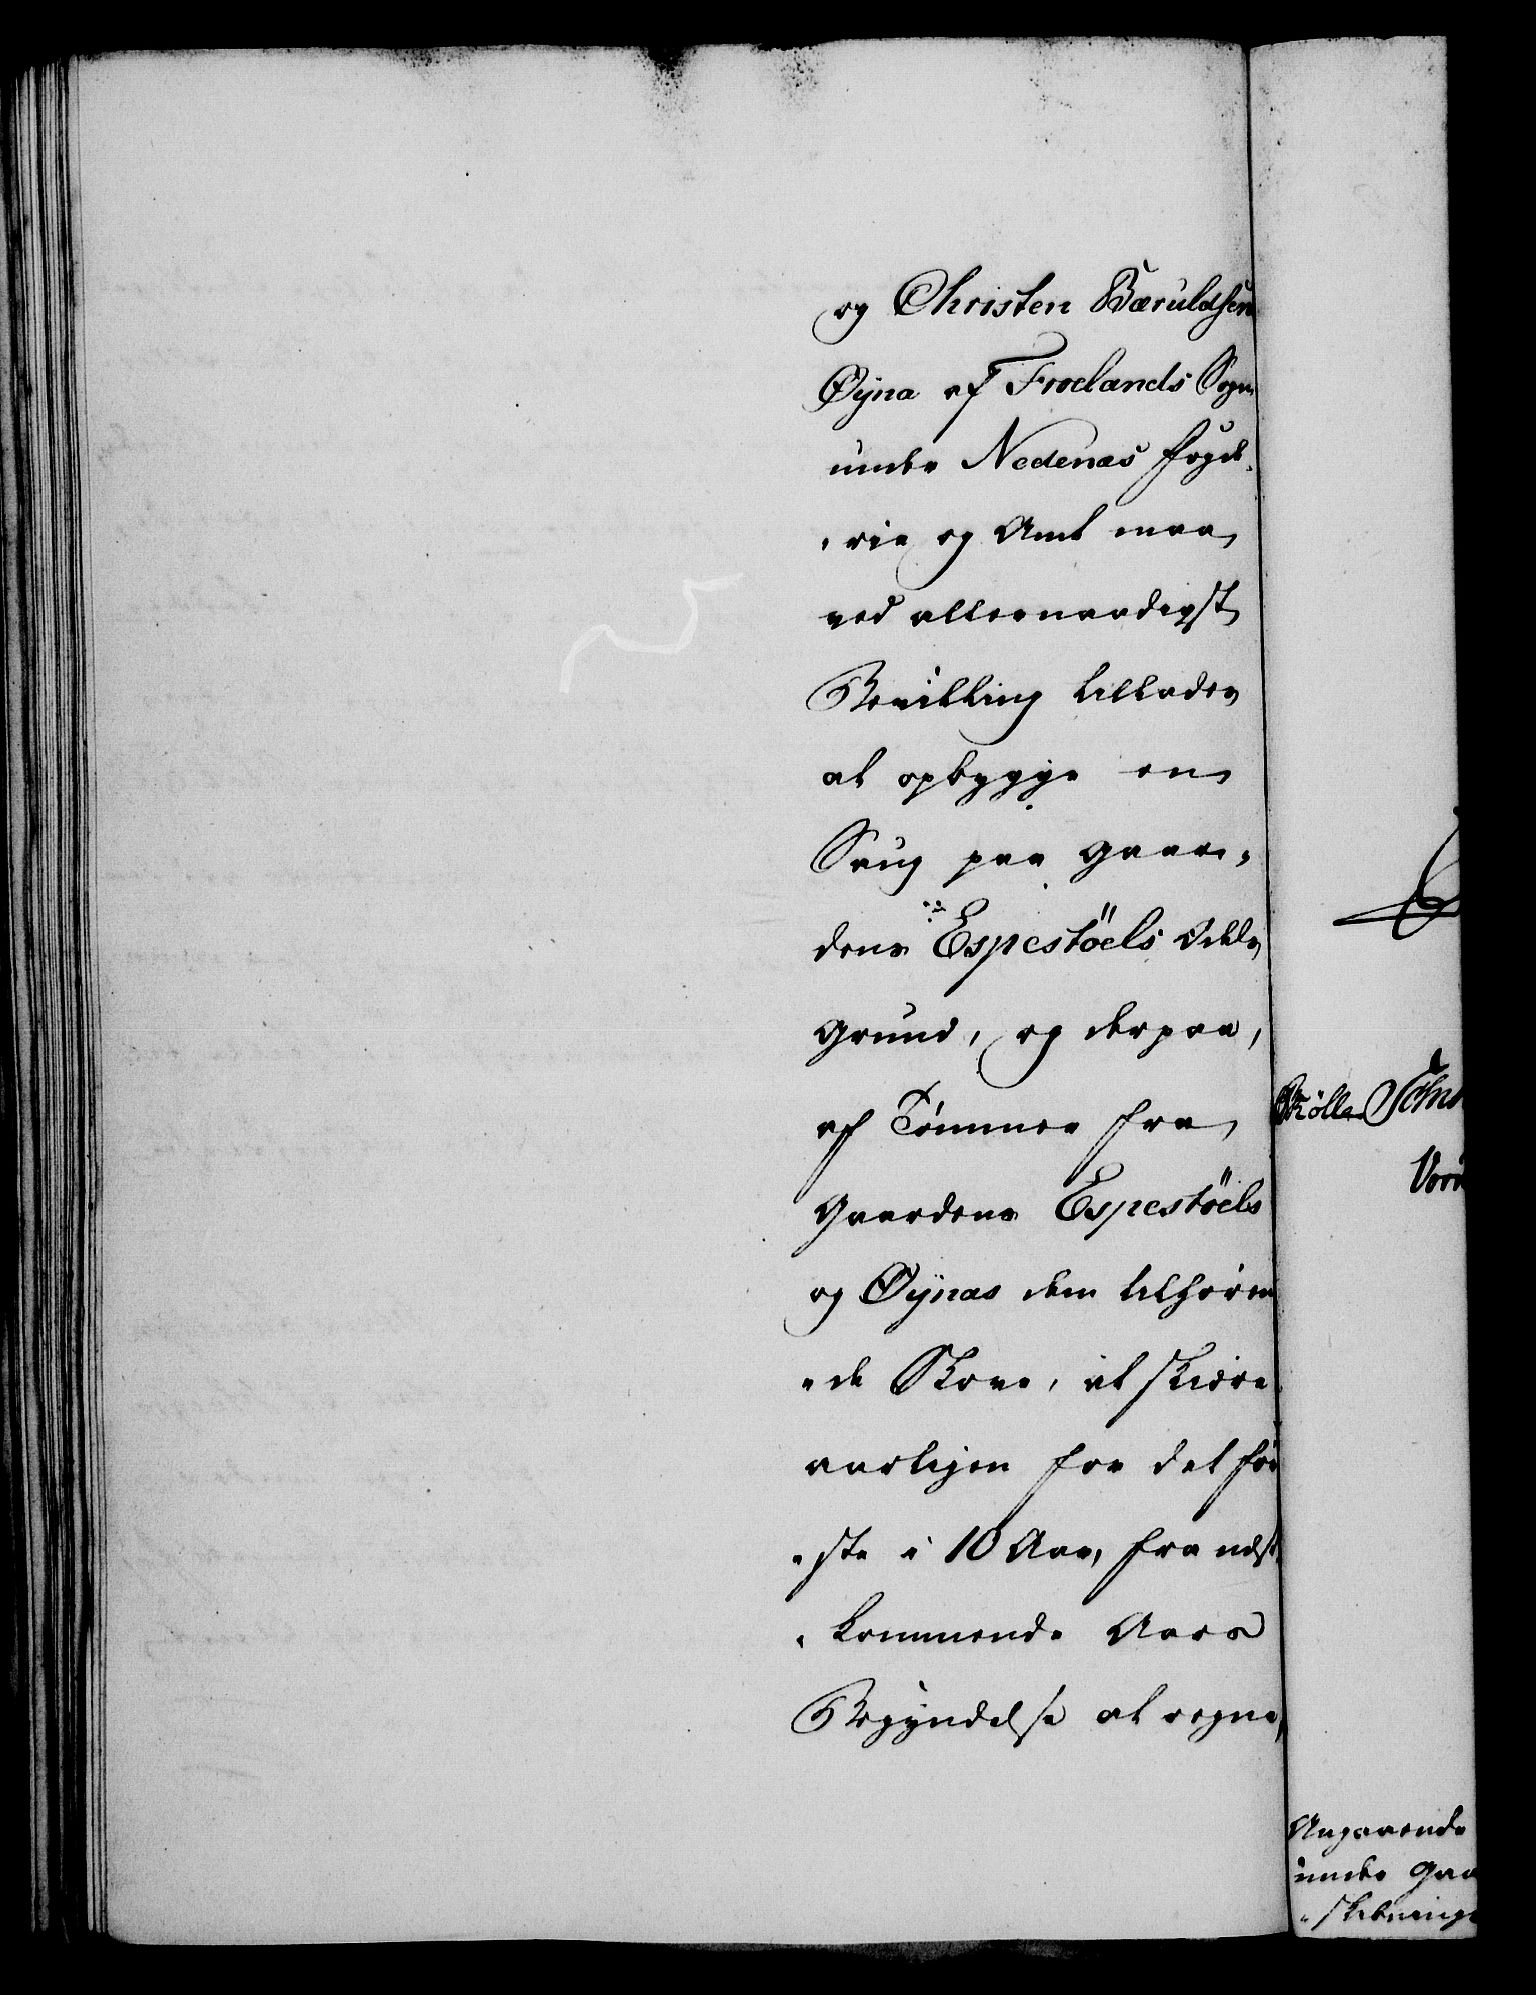 og Christen Bæruldsen
Øyna af Froelands Sogn
under Nedenæs Fogde,
,rie og Amt maa
ved allernaadigst
Bevilling tillades
at opbygge en
Saug paa Gaar,
dens Espestöels Odels
Grund, og derpaa,
af Tømmer fra
Gaardens Espestöels
og Øÿnas dem tilhøren
,de Skove, at skiære
aarligen for det før
,ste i 10 Aar, fra næst
,kommende Aars
Begyndelse at regne,
Møller
Angaaende
under Gaa